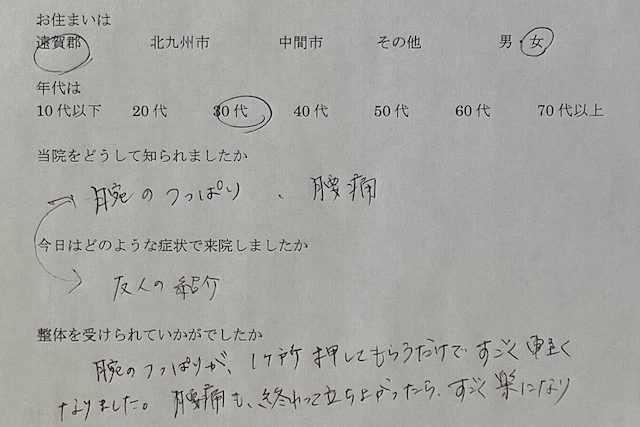 お住まいは
遠賀郡 北九州市 中間市 その他 男・女
年代は
10代以下 20代 30代 40代 50代 60代 70代以上
当院をどうして知られましたか
腕のつっぱり 、 腰痛
今日はどのような症状で来院しましたか
友人の紹介
整体を受けられていかがでしたか
腕のつっぱりが、1ヶ所押してもらうだけですごく軽く
なりました。腰痛も、終わって立ち上がったら、すごく楽になり